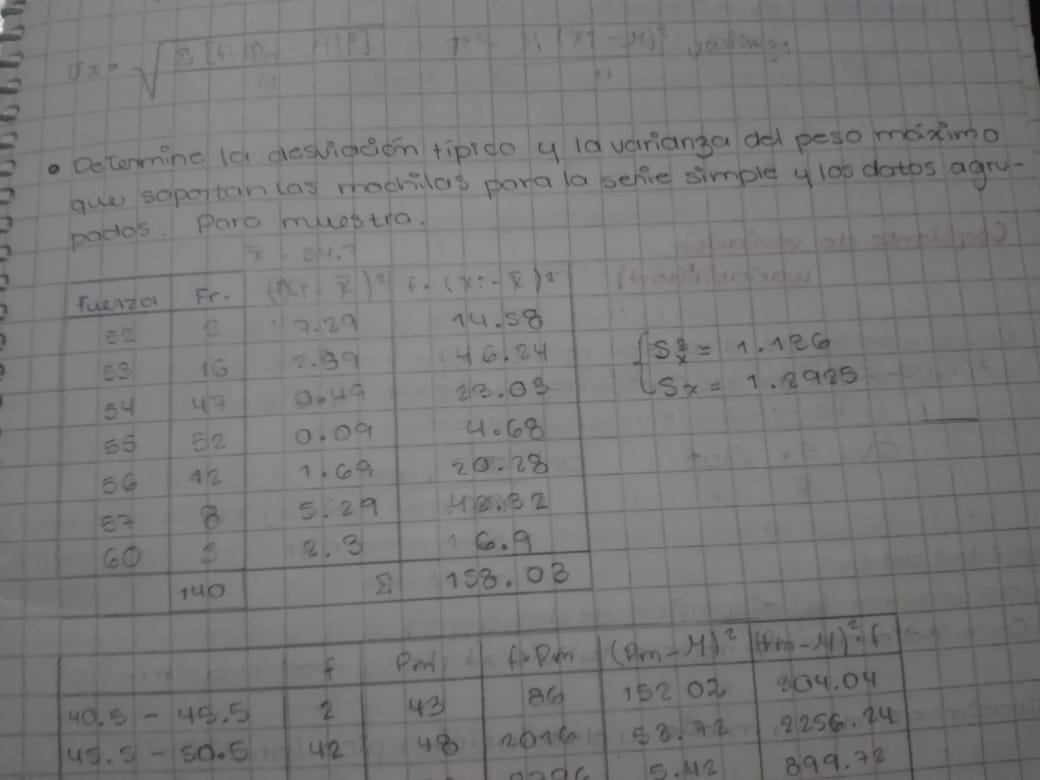 σx = √
• Determine la desviación típido y la varianza del peso máximo
que soportan las mochilas para la serie simple y los datos agru-
pados. Para muestra.
x̄ = 54.7
Fuerza Fr. (xi - x̄)² f. (xi - x̄)²
52 2 7.29 14.58
53 16 2.89 46.24
54 47 0.49 23.03
55 52 0.09 4.68
56 12 1.69 20.28
57 8 5.29 42.32
60 3 2.3 6.9
140 Σ 158.03
S²x = 1.126
Sx = 1.2925
f Pm f.Pm (Pm - M)² (Pm - M)².f
40.5 - 45.5 2 43 86 152.02 304.04
45.5 - 50.5 42 48 2016 53.72 2256.24
5.42 899.72